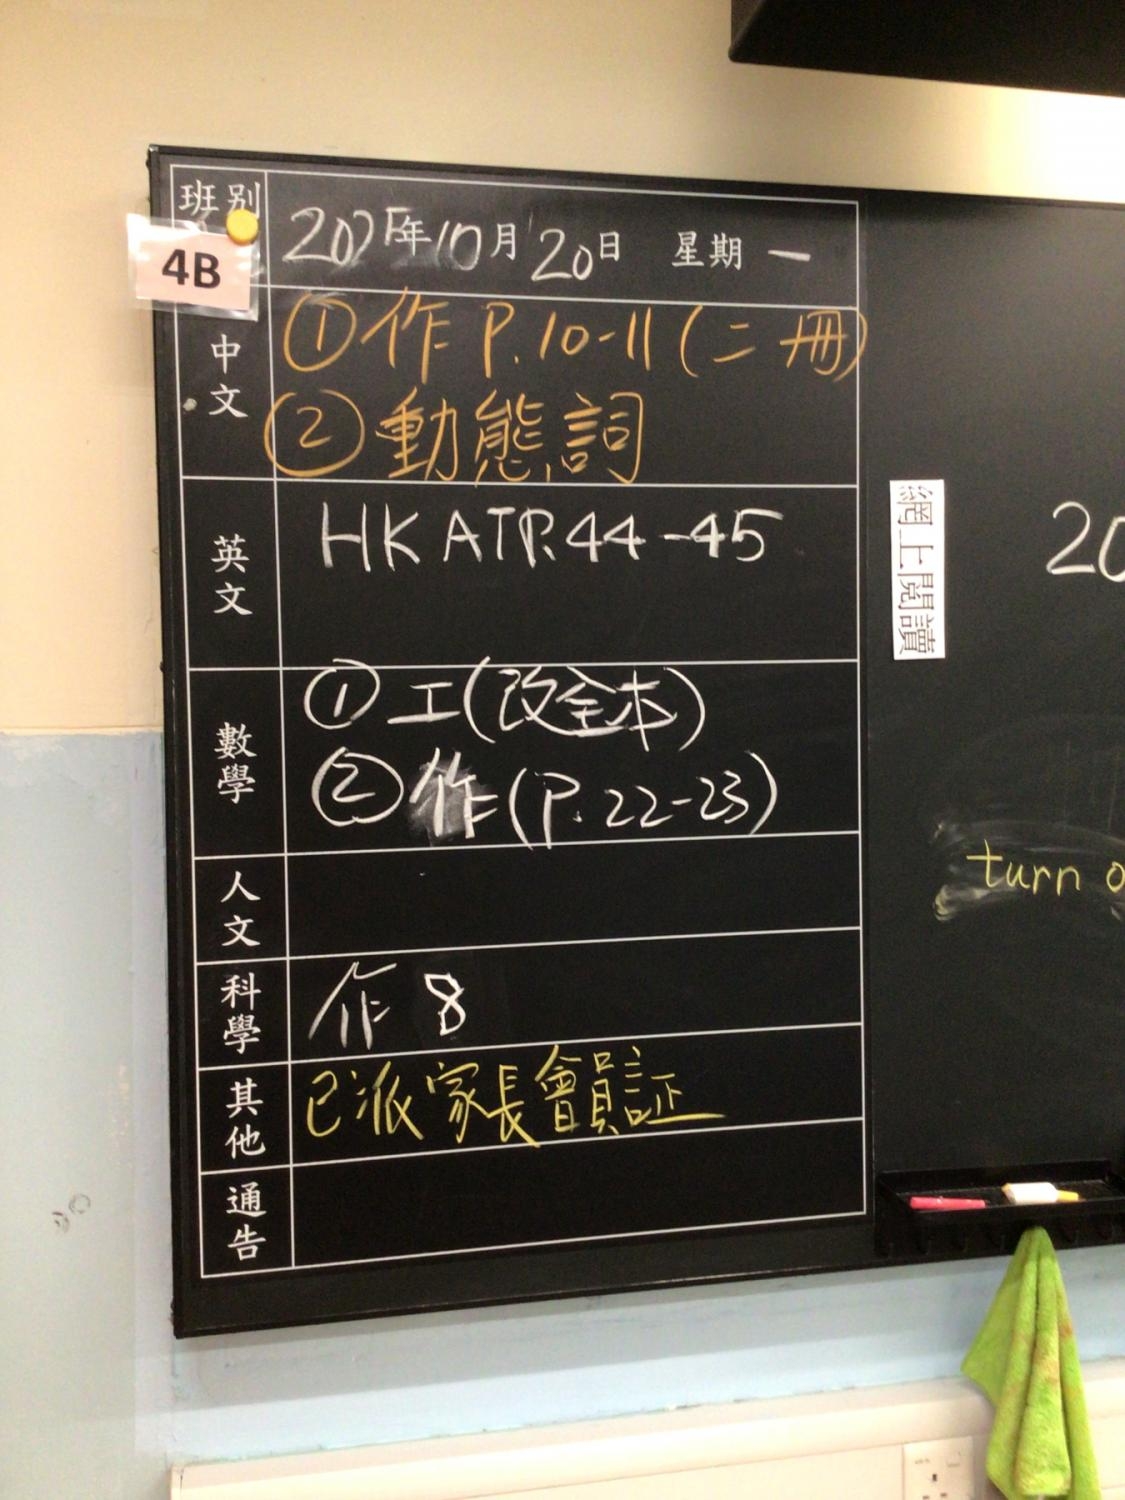 班別
4B
2025年10月20日 星期一
中文
①作 P.10-11(二冊)
②動態詞
英文
HK ATP.44-45
數學
①工(改全本)
②作(P.22-23)
人文
科學
作 8
其他
已派家長會員証
通告
網上閱讀
20
turn o